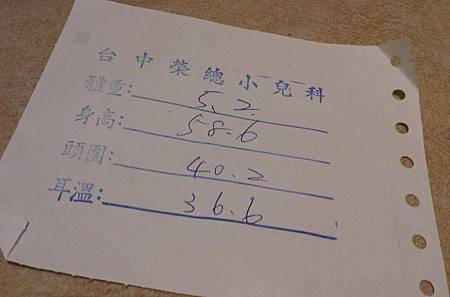 台中榮總小兒科
體重:5.2
身高:58.6
頭圍:40.2
耳溫:36.6